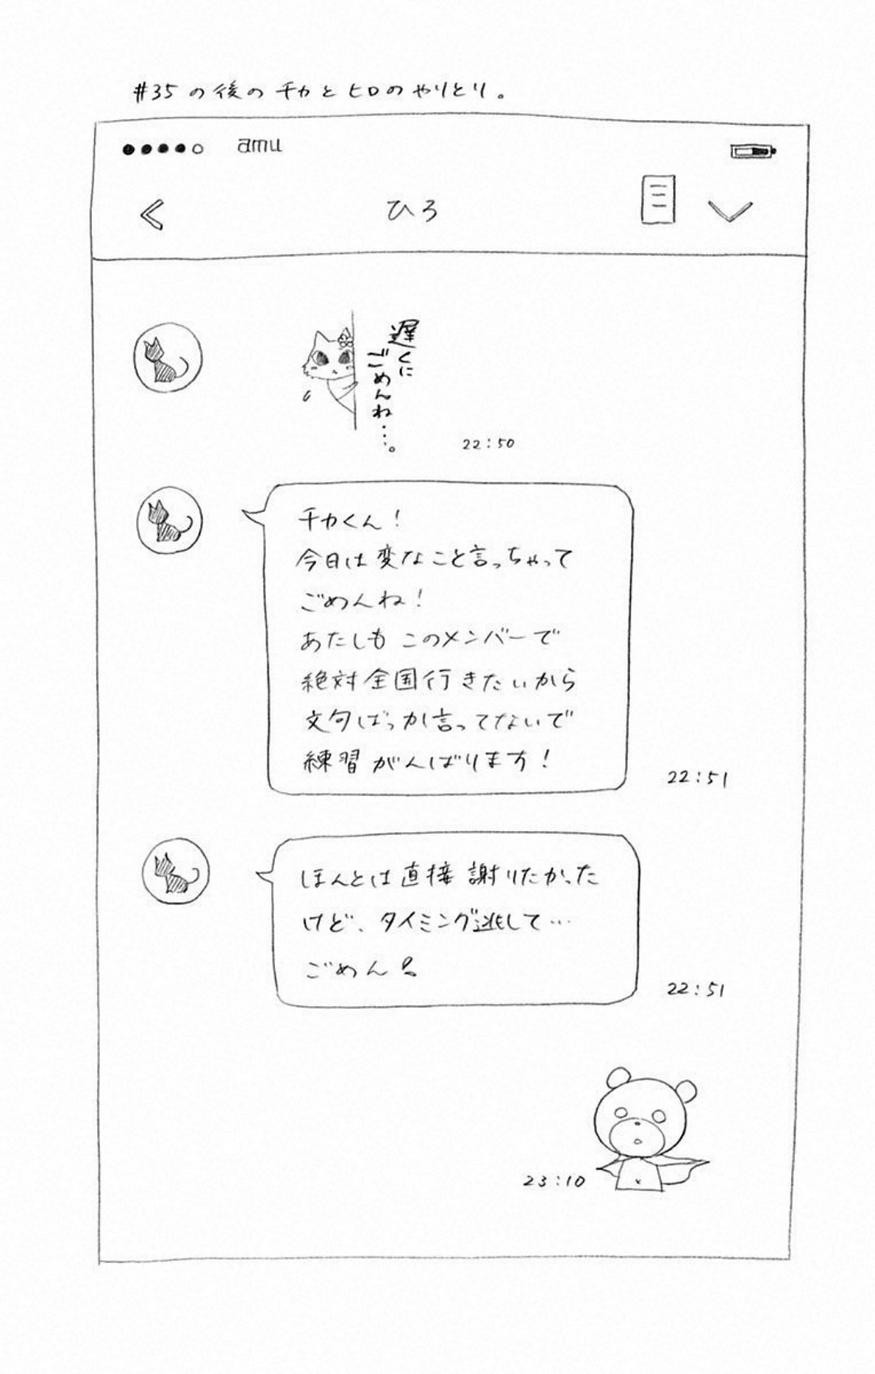 #35の後のチカとヒロのやりとり。
amu
ひろ
遅くに
ごめんね…。
22:50
チカくん!
今日は変なこと言っちゃって
ごめんね!
あたしも このメンバーで
絶対全国行きたいから
文句ばっか言ってないで
練習がんばります!
22:51
ほんとは直接謝りたかった
けど、タイミング逃して…
ごめん
22:51
23:10